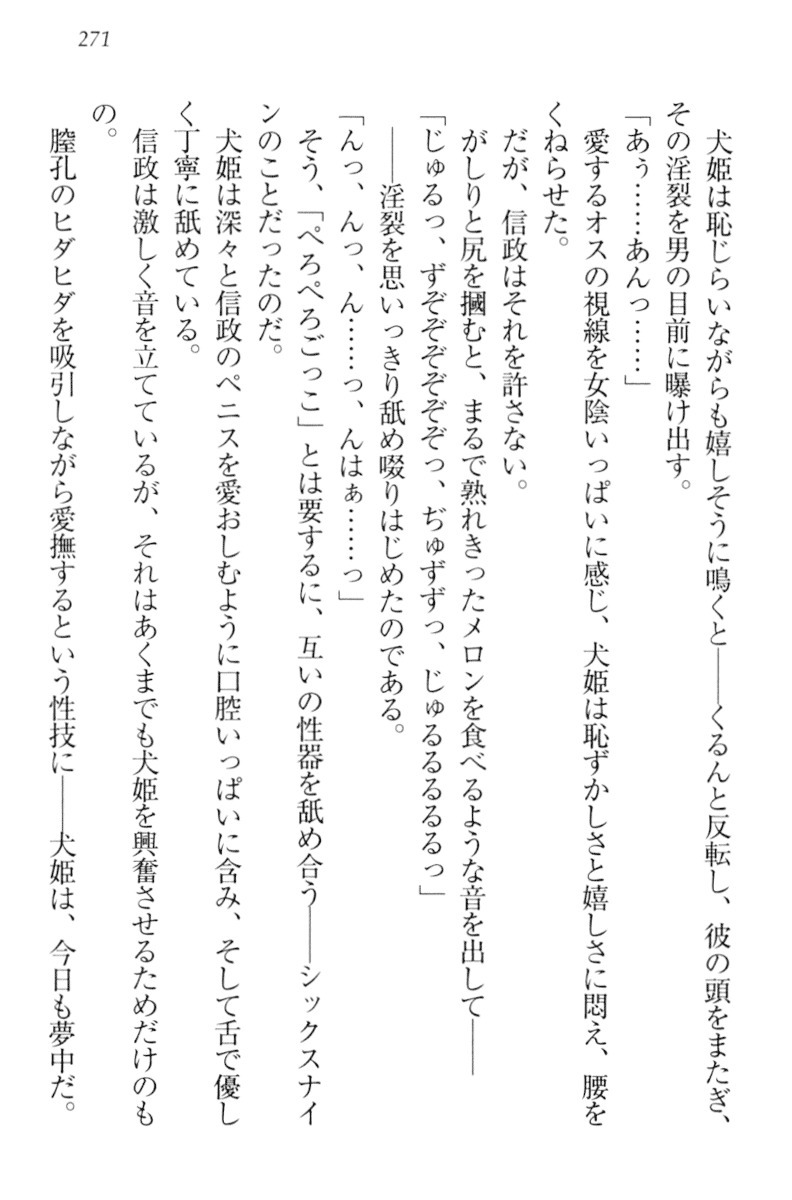 271
犬姫は恥じらいながらも嬉しそうに鳴くと――くるんと反転し、彼の頭をまたぎ、
その淫裂を男の目前に曝け出す。
「あぅ……あんっ……」
愛するオスの視線を女陰いっぱいに感じ、犬姫は恥ずかしさと嬉しさに悶え、腰を
くねらせた。
だが、信政はそれを許さない。
がしりと尻を摑むと、まるで熟れきったメロンを食べるような音を出して――
「じゅるっ、ずぞぞぞぞぞっ、ぢゅずずっ、じゅるるるるっ」
――淫裂を思いっきり舐め啜りはじめたのである。
「んっ、んっ、ん……っ、んはぁ……っ」
そう、「ぺろぺろごっこ」とは要するに、互いの性器を舐め合う――シックスナイ
ンのことだったのだ。
犬姫は深々と信政のペニスを愛おしむように口腔いっぱいに含み、そして舌で優し
く丁寧に舐めている。
信政は激しく音を立てているが、それはあくまでも犬姫を興奮させるためだけのも
の。
膣孔のヒダヒダを吸引しながら愛撫するという性技に――犬姫は、今日も夢中だ。